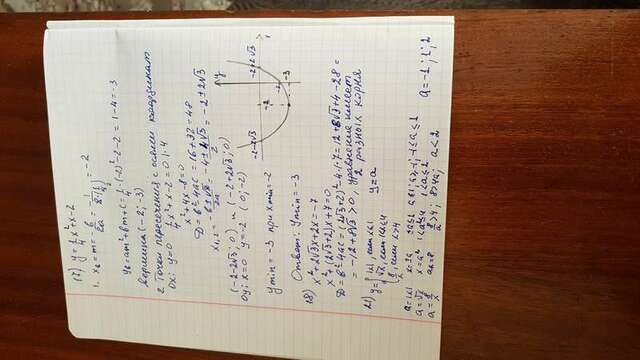 17) y = 1/4 x² + x - 2
1. x₆ = m = -b/2a = -1/(2·1/4) = -2
y₆ = am² + bm + c = 1/4 · (-2)² - 2 - 2 = 1 - 4 = -3
вершина (-2; -3)
2. Точки пересечения с осями координат
Ox: y=0 1/4 x² + x - 2 = 0 | · 4
x² + 4x - 8 = 0
D = b² - 4ac = 16 + 32 = 48
x₁,₂ = (-b ± √D)/2a = (-4 ± 4√3)/2 = -2 ± 2√3
(-2-2√3; 0) и (-2+2√3; 0)
Oy: x=0 y=-2 (0; -2)
y min = -3 при x min = -2
y
-2-2√3
-2+2√3
-2
-2
-3
Ответ: y min = -3
18)
x² + 2√3x + 2x = -7
x² + (2√3+2)x + 7 = 0
D = b² - 4ac = (2√3+2)² - 4·1·7 = 12 + 8√3 + 4 - 28 =
= -12 + 8√3 > 0, уравнение имеет
2 разных корня
21) y = |x|, если x≤1 y=a
если
8/x, если x>4
a = |x|
a = √x x = a² 1<a≤2
a = 8/x ax = 8 8/a > 4; 8 > 4a; a < 2
a = -1; 1; 2